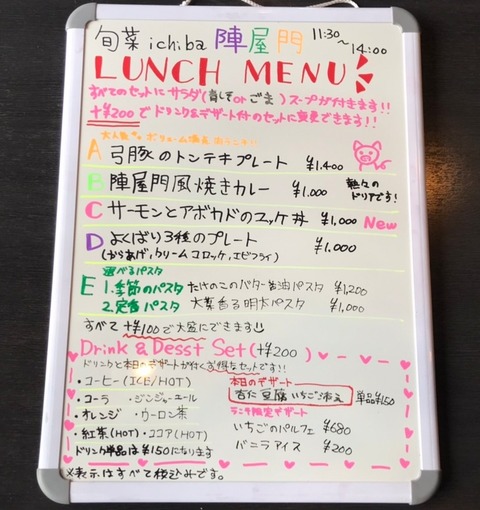 旬菜 ichiba 陣屋門 11:30～14:00
LUNCH MENU
すべてのセットにサラダ(青じそorごま)スープが付きます!!
+¥200でドリンク&デザート付のセットに変更できます!!
大人気
A 弓豚のトンテキプレート ¥1.400
B 陣屋門風焼きカレー ¥1.000 熱々のドリアです!
C サーモンとアボカドのユッケ丼 ¥1,000 New
D よくばり3種のプレート ¥1.000
(からあげ,クリームコロッケ,エビフライ)
E 選べるパスタ
1.季節のパスタ たけのこのバター醤油パスタ ¥1,200
2.定番パスタ 大葉香る明太パスタ ¥1,000
すべて+¥100で大盛にできます
Drink & Desst Set (+¥200)
ドリンクと本日のデザートが付くお得なセットです!!
・コーヒー(ICE/HOT)
・コーラ ・ジンジャーエール
・オレンジ ・ウーロン茶
・紅茶(HOT)・ココア(HOT)
ドリンク単品は¥150になります
本日のデザート
杏仁豆腐いちご添え 単品¥150
ランチ限定デザート
いちごのパルフェ ¥680
バニラアイス ¥200
※表示はすべて税込みです。